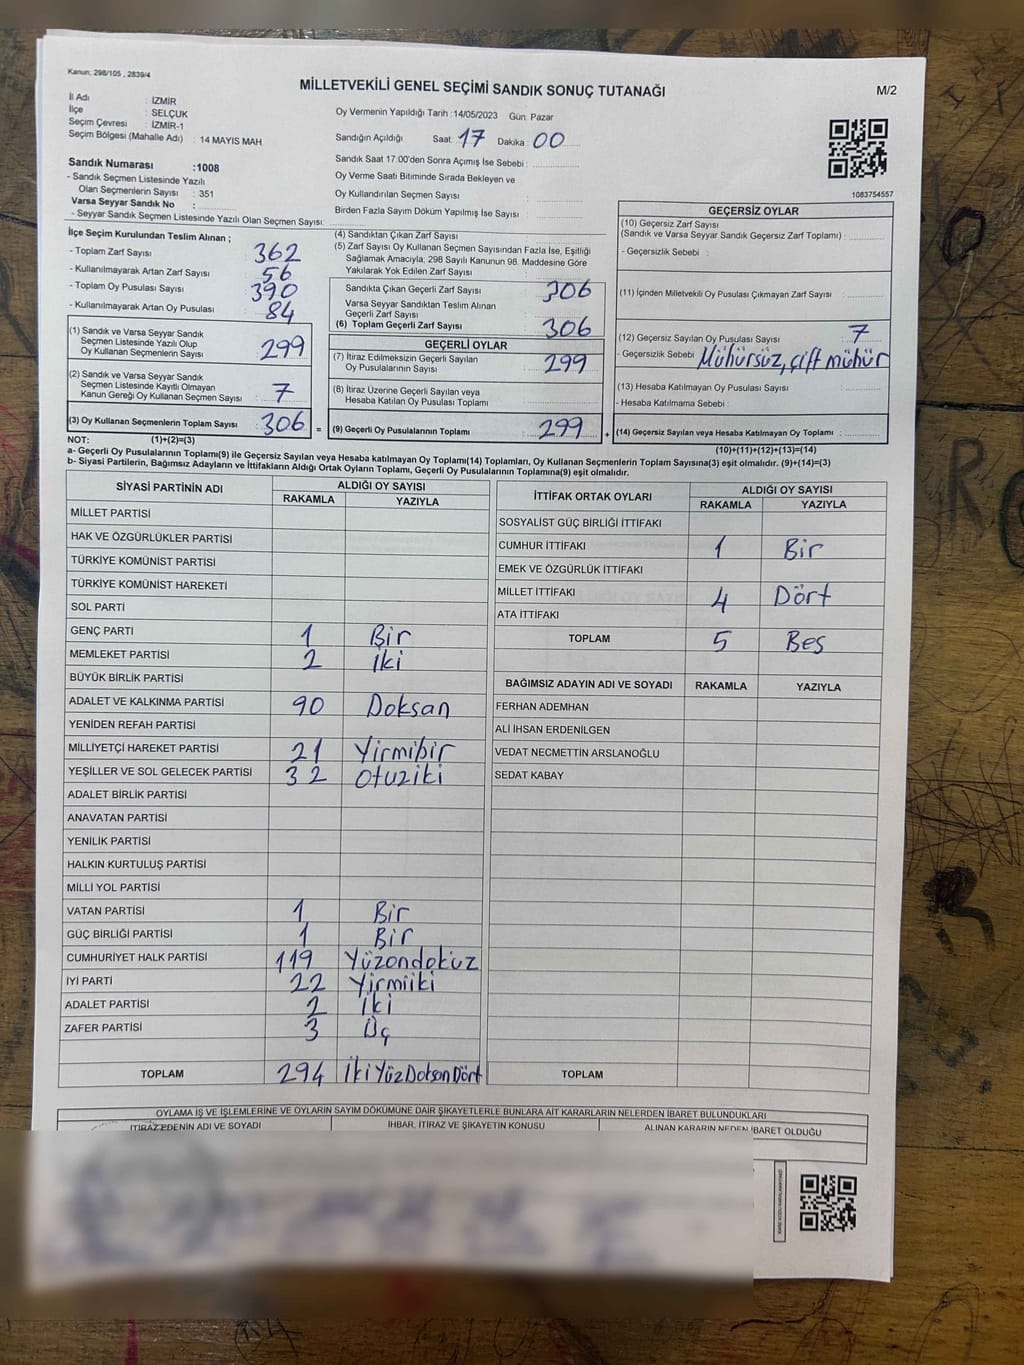 Kanun; 298/105 , 2839/4
MİLLETVEKİLİ GENEL SEÇİMİ SANDIK SONUÇ TUTANAĞI
M/2
İl Adı : İZMİR
İlçe : SELÇUK
Seçim Çevresi : İZMİR-1
Seçim Bölgesi (Mahalle Adı) : 14 MAYIS MAH.
Sandık Numarası :1008
- Sandık Seçmen Listesinde Yazılı
Olan Seçmenlerin Sayısı : 351
Varsa Seyyar Sandık No :
- Seyyar Sandık Seçmen Listesinde Yazılı Olan Seçmen Sayısı:
Oy Vermenin Yapıldığı Tarih :14/05/2023 Gün: Pazar
Sandığın Açıldığı Saat: 17 Dakika: 00
Sandık Saat 17.00'den Sonra Açımış İse Sebebi :
Oy Verme Saati Bitiminde Sırada Bekleyen ve
Oy Kullandırılan Seçmen Sayısı
Birden Fazla Sayım Döküm Yapılmış İse Sayısı
1083754557
İlçe Seçim Kurulundan Teslim Alınan ;
- Toplam Zarf Sayısı 362
- Kullanılmayarak Artan Zarf Sayısı 56
- Toplam Oy Pusulası Sayısı 390
- Kullanılmayarak Artan Oy Pusulası 84
(1) Sandık ve Varsa Seyyar Sandık
Seçmen Listesinde Yazılı Olup
Oy Kullanan Seçmenlerin Sayısı 299
(2) Sandık ve Varsa Seyyar Sandık
Seçmen Listesinde Kayıtlı Olmayan
Kanun Gereği Oy Kullanan Seçmen Sayısı 7
(3) Oy Kullanan Seçmenlerin Toplam Sayısı 306 =
(4) Sandıktan Çıkan Zarf Sayısı
(5) Zarf Sayısı Oy Kullanan Seçmen Sayısından Fazla İse, Eşitliği
Sağlamak Amacıyla, 298 Sayılı Kanunun 98. Maddesine Göre
Yakılarak Yok Edilen Zarf Sayısı
Sandıkta Çıkan Geçerli Zarf Sayısı 306
Varsa Seyyar Sandıktan Teslim Alınan
Geçerli Zarf Sayısı
(6) Toplam Geçerli Zarf Sayısı 306
GEÇERLİ OYLAR
(7) İtiraz Edilmeksizin Geçerli Sayılan
Oy Pusulalarının Sayısı 299
(8) İtiraz Üzerine Geçerli Sayılan veya
Hesaba Katılan Oy Pusulası Toplamı
(9) Geçerli Oy Pusulalarının Toplamı 299 +
GEÇERSİZ OYLAR
(10) Geçersiz Zarf Sayısı
(Sandık ve Varsa Seyyar Sandık Geçersiz Zarf Toplamı) :
- Geçersizlik Sebebi :
(11) İçinden Milletvekili Oy Pusulası Çıkmayan Zarf Sayısı :
(12) Geçersiz Sayılan Oy Pusulası Sayısı : 7
- Geçersizlik Sebebi : Mühürsüz, çift mühür
(13) Hesaba Katılmayan Oy Pusulası Sayısı :
- Hesaba Katılmama Sebebi :
(14) Geçersiz Sayılan veya Hesaba Katılmayan Oy Toplamı :
NOT: (1)+(2)=(3)
(10)+(11)+(12)+(13)=(14)
a- Geçerli Oy Pusulalarının Toplamı(9) ile Geçersiz Sayılan veya Hesaba katılmayan Oy Toplamı(14) Toplamları, Oy Kullanan Seçmenlerin Toplam Sayısına(3) eşit olmalıdır. (9)+(14)=(3)
b- Siyasi Partilerin, Bağımsız Adayların ve İttifakların Aldığı Ortak Oyların Toplamı, Geçerli Oy Pusulalarının Toplamına(9) eşit olmalıdır.
SİYASİ PARTİNİN ADI ALDIĞI OY SAYISI
RAKAMLA YAZIYLA
MİLLET PARTİSİ
HAK VE ÖZGÜRLÜKLER PARTİSİ
TÜRKİYE KOMÜNİST PARTİSİ
TÜRKİYE KOMÜNİST HAREKETİ
SOL PARTİ
GENÇ PARTİ 1 Bir
MEMLEKET PARTİSİ 2 iki
BÜYÜK BİRLİK PARTİSİ
ADALET VE KALKINMA PARTİSİ 90 Doksan
YENİDEN REFAH PARTİSİ
MİLLİYETÇİ HAREKET PARTİSİ 21 Yirmibir
YEŞİLLER VE SOL GELECEK PARTİSİ 32 otuziki
ADALET BİRLİK PARTİSİ
ANAVATAN PARTİSİ
YENİLİK PARTİSİ
HALKIN KURTULUŞ PARTİSİ
MİLLİ YOL PARTİSİ
VATAN PARTİSİ 1 Bir
GÜÇ BİRLİĞİ PARTİSİ 1 Bir
CUMHURİYET HALK PARTİSİ 119 Yüzondokuz
İYİ PARTİ 22 Yirmiiki
ADALET PARTİSİ 2 İki
ZAFER PARTİSİ 3 Üç
TOPLAM 294 İki Yüz Doksan Dört
İTTİFAK ORTAK OYLARI ALDIĞI OY SAYISI
RAKAMLA YAZIYLA
SOSYALİST GÜÇ BİRLİĞİ İTTİFAKI
CUMHUR İTTİFAKI 1 Bir
EMEK VE ÖZGÜRLÜK İTTİFAKI
MİLLET İTTİFAKI 4 Dört
ATA İTTİFAKI
TOPLAM 5 Beş
BAĞIMSIZ ADAYIN ADI VE SOYADI RAKAMLA YAZIYLA
FERHAN ADEMHAN
ALİ İHSAN ERDENİLGEN
VEDAT NECMETTİN ARSLANOĞLU
SEDAT KABAY
TOPLAM
OYLAMA İŞ VE İŞLEMLERİNE VE OYLARIN SAYIM DÖKÜMÜNE DAİR ŞİKAYETLERLE BUNLARA AİT KARARLARIN NELERDEN İBARET BULUNDUKLARI
İTİRAZ EDENİN ADI VE SOYADI İHBAR, İTİRAZ VE ŞİKAYETİN KONUSU ALINAN KARARIN NEDEN İBARET OLDUĞU